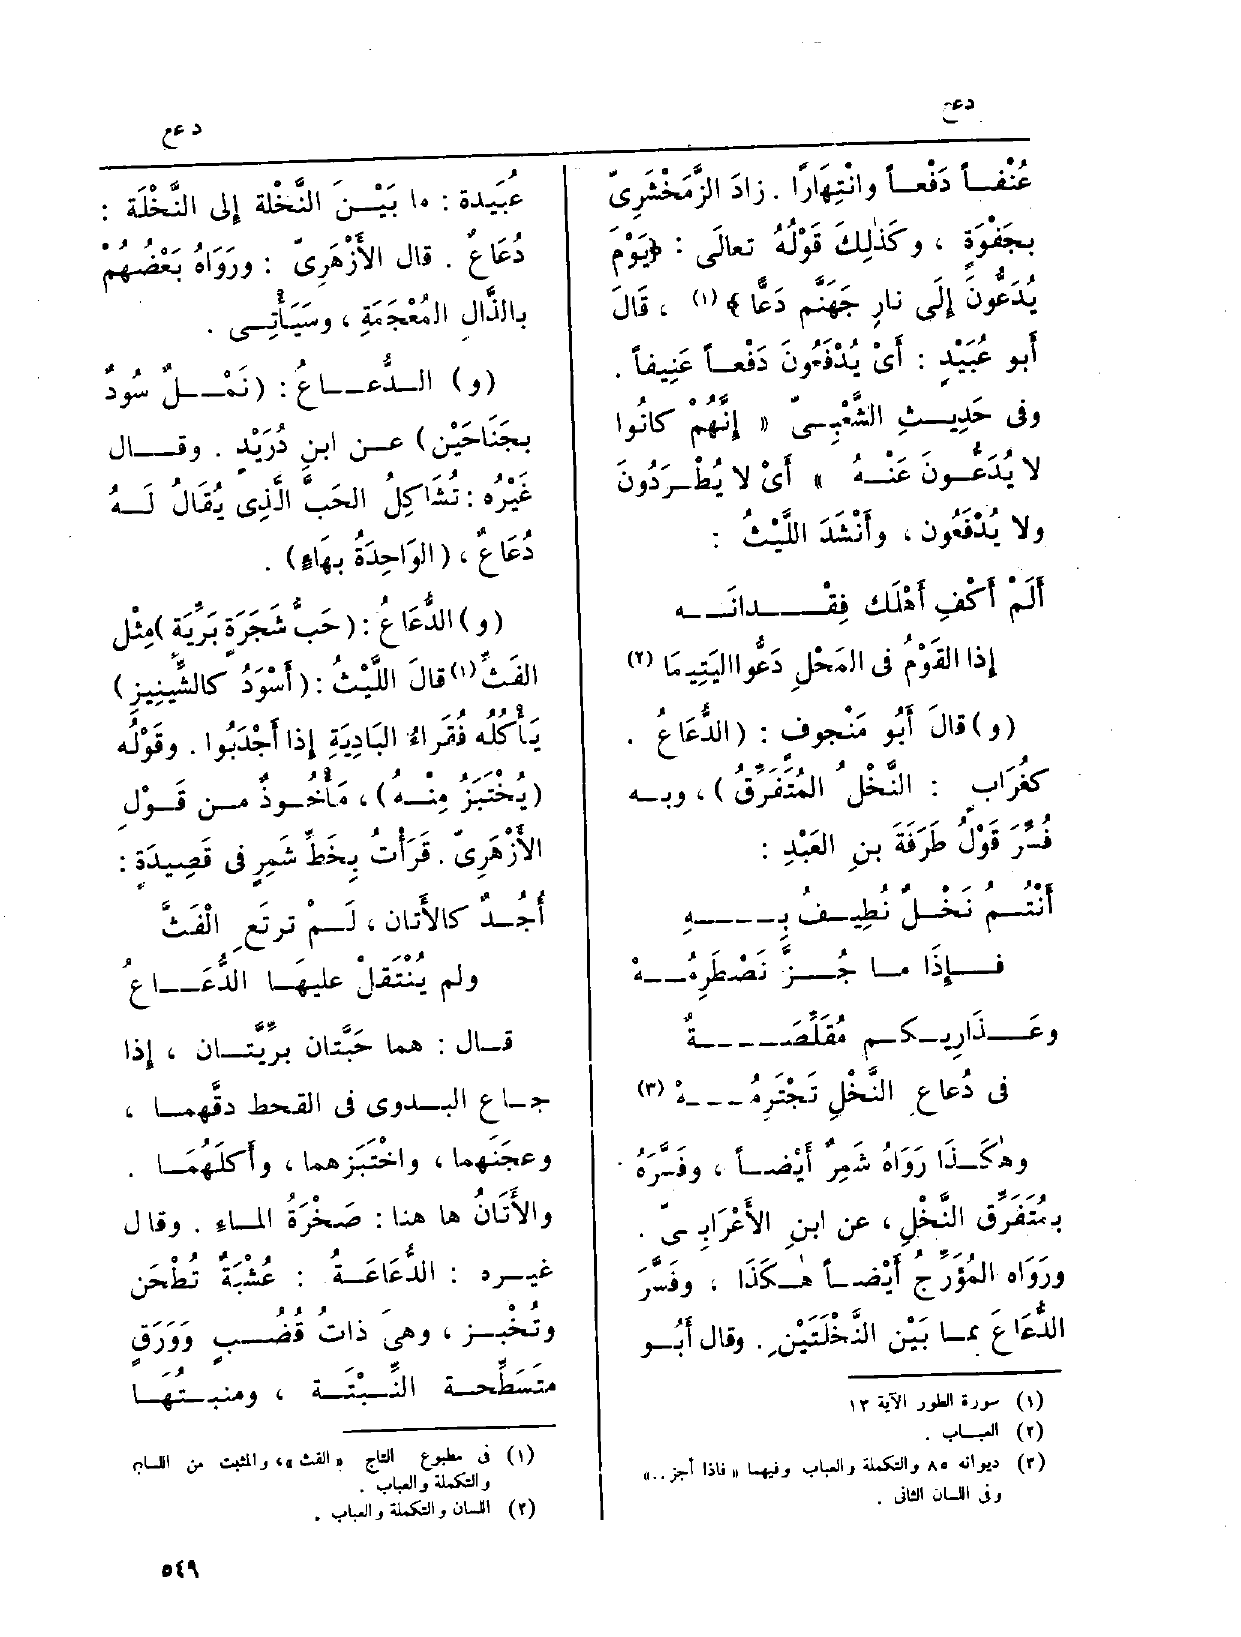 دعع
دعع
عُنْفاً دَفْعاً وانْتِهَارًا . زادَ الزَّمَخْشَرِىّ
بجَفْوَةٍ ، وكَذٰلِكَ قَوْلُهُ تعالَى : ﴿يَوْمَ
يُدَعُّونَ إِلَى نارِ جَهَنَّم دَعًّا ﴾ (١) ، قَالَ
أبو عُبَيْدٍ : أَىْ يُدْفَعُونَ دَفْعاً عَنِيفاً .
وفى حَدِيثِ الشَّعْبِىّ « إِنَّهُم كانُوا
لا يُدَعُّونَ عَنْهُ » أَىْ لا يُطْرَدُونَ
ولا يُدْفَعُون ، وأَنْشَدَ اللَّيْثُ :
أَلَمْ أَكْفِ أَهْلَك فِقْدانَه
إذا القَوْمُ فى المَحْلِ دَعُّوا اليَتِيمَا (٢)
(و) قالَ أَبُو مَنْجوفٍ : (الدُّعَاعُ .
كغُرَابٍ : النَّخْلُ المُتَفَرِّقُ) ، وبه
فُسِّرَ قَوْلُ طَرَفَةَ بنِ العَبْدِ :
أَنْتُم نَخْلٌ نُطِيفُ بِهِ
فإِذَا ما جُزَّ نَصْطَرِمُهْ
وعَذَارِيكم مُقَلِّصَةٌ
فى دُعاعِ النَّخْلِ تَجْتَرِمُهْ (٣)
وهٰكَذَا رَوَاهُ شَمِرٌ أَيْضاً ، وفَسَّرَهُ
بمُتَفَرِّقِ النَّخْلِ ، عن ابنِ الأَعْرَابِىّ .
ورَوَاه المُؤَرِّجُ أَيْضاً هٰكَذَا ، وفَسَّرَ
الدُّعَاعَ بما بَيْن النَّخْلَتَيْنِ . وقال أَبُو
(١) سورة الطور الآية ١٣
(٢) العباب .
(٣) ديوانه ٨٥ والتكملة والعباب وفيهما « فاذا أجز .. »
وفى اللسان الثانى .
عُبَيدة : ما بَيْنَ النَّخْلة إلى النَّخْلَة :
دُعَاعٌ . قال الأَزْهَرِىّ : ورَوَاهُ بَعْضُهُمْ
بالذَّال المُعْجَمَةِ ، وسَيَأْتِى .
(و) الدُّعَاعُ : (نَمْلٌ سُودٌ
بجَنَاحَيْن) عن ابنِ دُرَيْدٍ . وقال
غَيْرُه : تُشَاكِلُ الحَبَّ الَّذِى يُقَالُ لَهُ
دُعَاعٌ ، (الوَاحِدَةُ بهَاءٍ) .
(و) الدُّعَاعُ : (حَبُّ شَجَرَةٍ بَرِّيَةٍ) مِثْل
الفَثِّ (١) قالَ اللَّيْثُ : (أَسْوَدُ كالشِّينِيزِ)
يَأْكُلُه فُقَرَاءُ البَادِيَةِ إذا أَجْدَبُوا . وقَوْلُه
(يُخْتَبَزُ مِنْهُ) ، مَأْخُوذٌ من قَوْلِ
الأَزْهَرِىّ . قَرَأْتُ بِخَطِّ شَمِرٍ فى قَصِيدَةٍ :
أُجُدٌ كالأَتان ، لَمْ ترتَعِ الْفَثَّ
ولم يُنْتَقَلْ عليهَا الدُّعَاعُ
قال : هما حَبَّتان برِّيَّتان ، إذا
جاع البدوى فى القحط دقَّهما ،
وعجَنَهما ، واخْتَبَزهما ، وأَكلَهُمَا .
والأَتَانُ ها هنا : صَخْرَةُ الماء . وقال
غيره : الدُّعَاعَةُ : عُشْبَةٌ تُطْحَن
وتُخْبز ، وهىَ ذاتُ قُضُبٍ وَوَرَقٍ
متَسَطِّحة النِّبْتَة ، ومنبتُهَا
(١) فى مطبوع التاج « القث » ، والمثبت من اللسان
والتكملة والعباب .
(٢) اللسان والتكملة والعباب .
٥٤٩